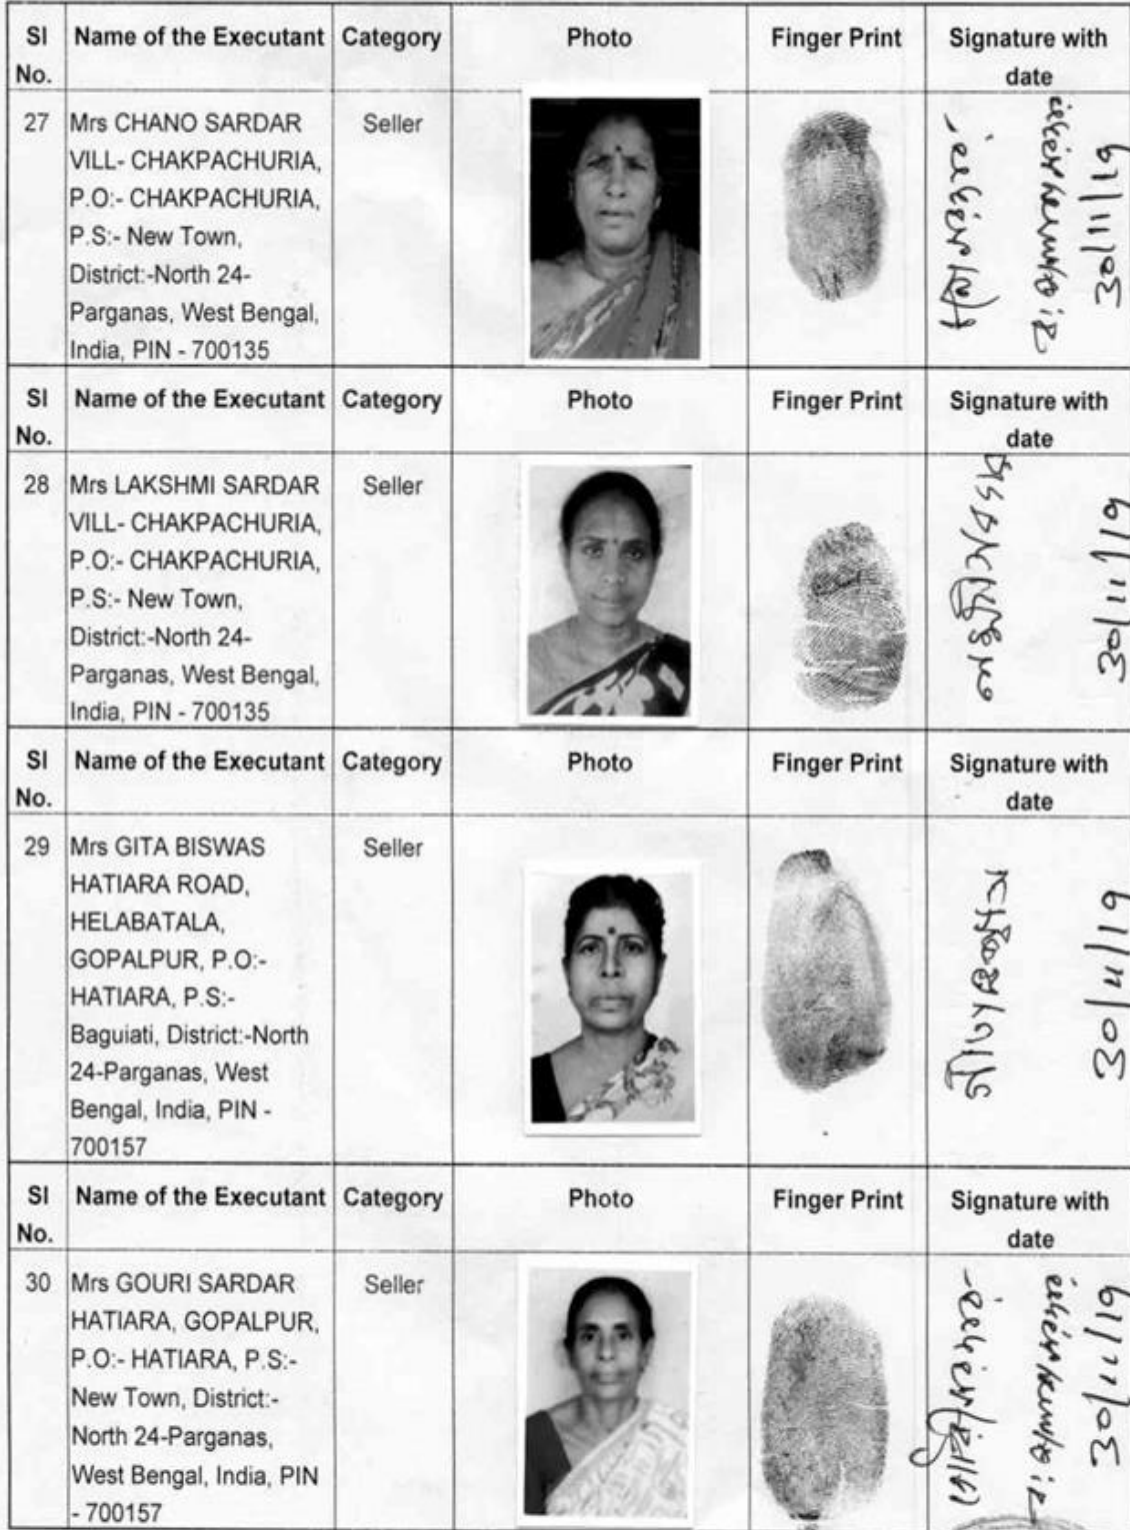 Sl No. Name of the Executant Category Photo Finger Print Signature with date
27 Mrs CHANO SARDAR Seller
VILL- CHAKPACHURIA,
P.O:- CHAKPACHURIA,
P.S:- New Town,
District:-North 24-
Parganas, West Bengal,
India, PIN - 700135
30/11/19
Sl No. Name of the Executant Category Photo Finger Print Signature with date
28 Mrs LAKSHMI SARDAR Seller
VILL- CHAKPACHURIA,
P.O:- CHAKPACHURIA,
P.S:- New Town,
District:-North 24-
Parganas, West Bengal,
India, PIN - 700135
30/11/19
Sl No. Name of the Executant Category Photo Finger Print Signature with date
29 Mrs GITA BISWAS Seller
HATIARA ROAD,
HELABATALA,
GOPALPUR, P.O:-
HATIARA, P.S:-
Baguiati, District:-North
24-Parganas, West
Bengal, India, PIN -
700157
30/11/19
Sl No. Name of the Executant Category Photo Finger Print Signature with date
30 Mrs GOURI SARDAR Seller
HATIARA, GOPALPUR,
P.O:- HATIARA, P.S:-
New Town, District:-
North 24-Parganas,
West Bengal, India, PIN
- 700157
30/11/19